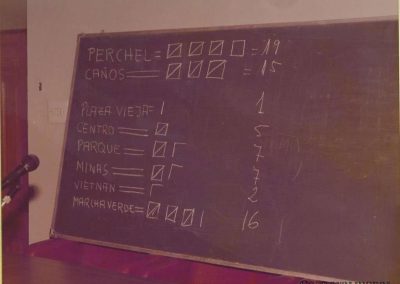 PERCHEL = 19
CAÑOS = 15
PLAZA VIEJA = 1
CENTRO = 5
PARQUE = 7
MINAS = 7
VIETNAN = 2
MARCHA VERDE = 16